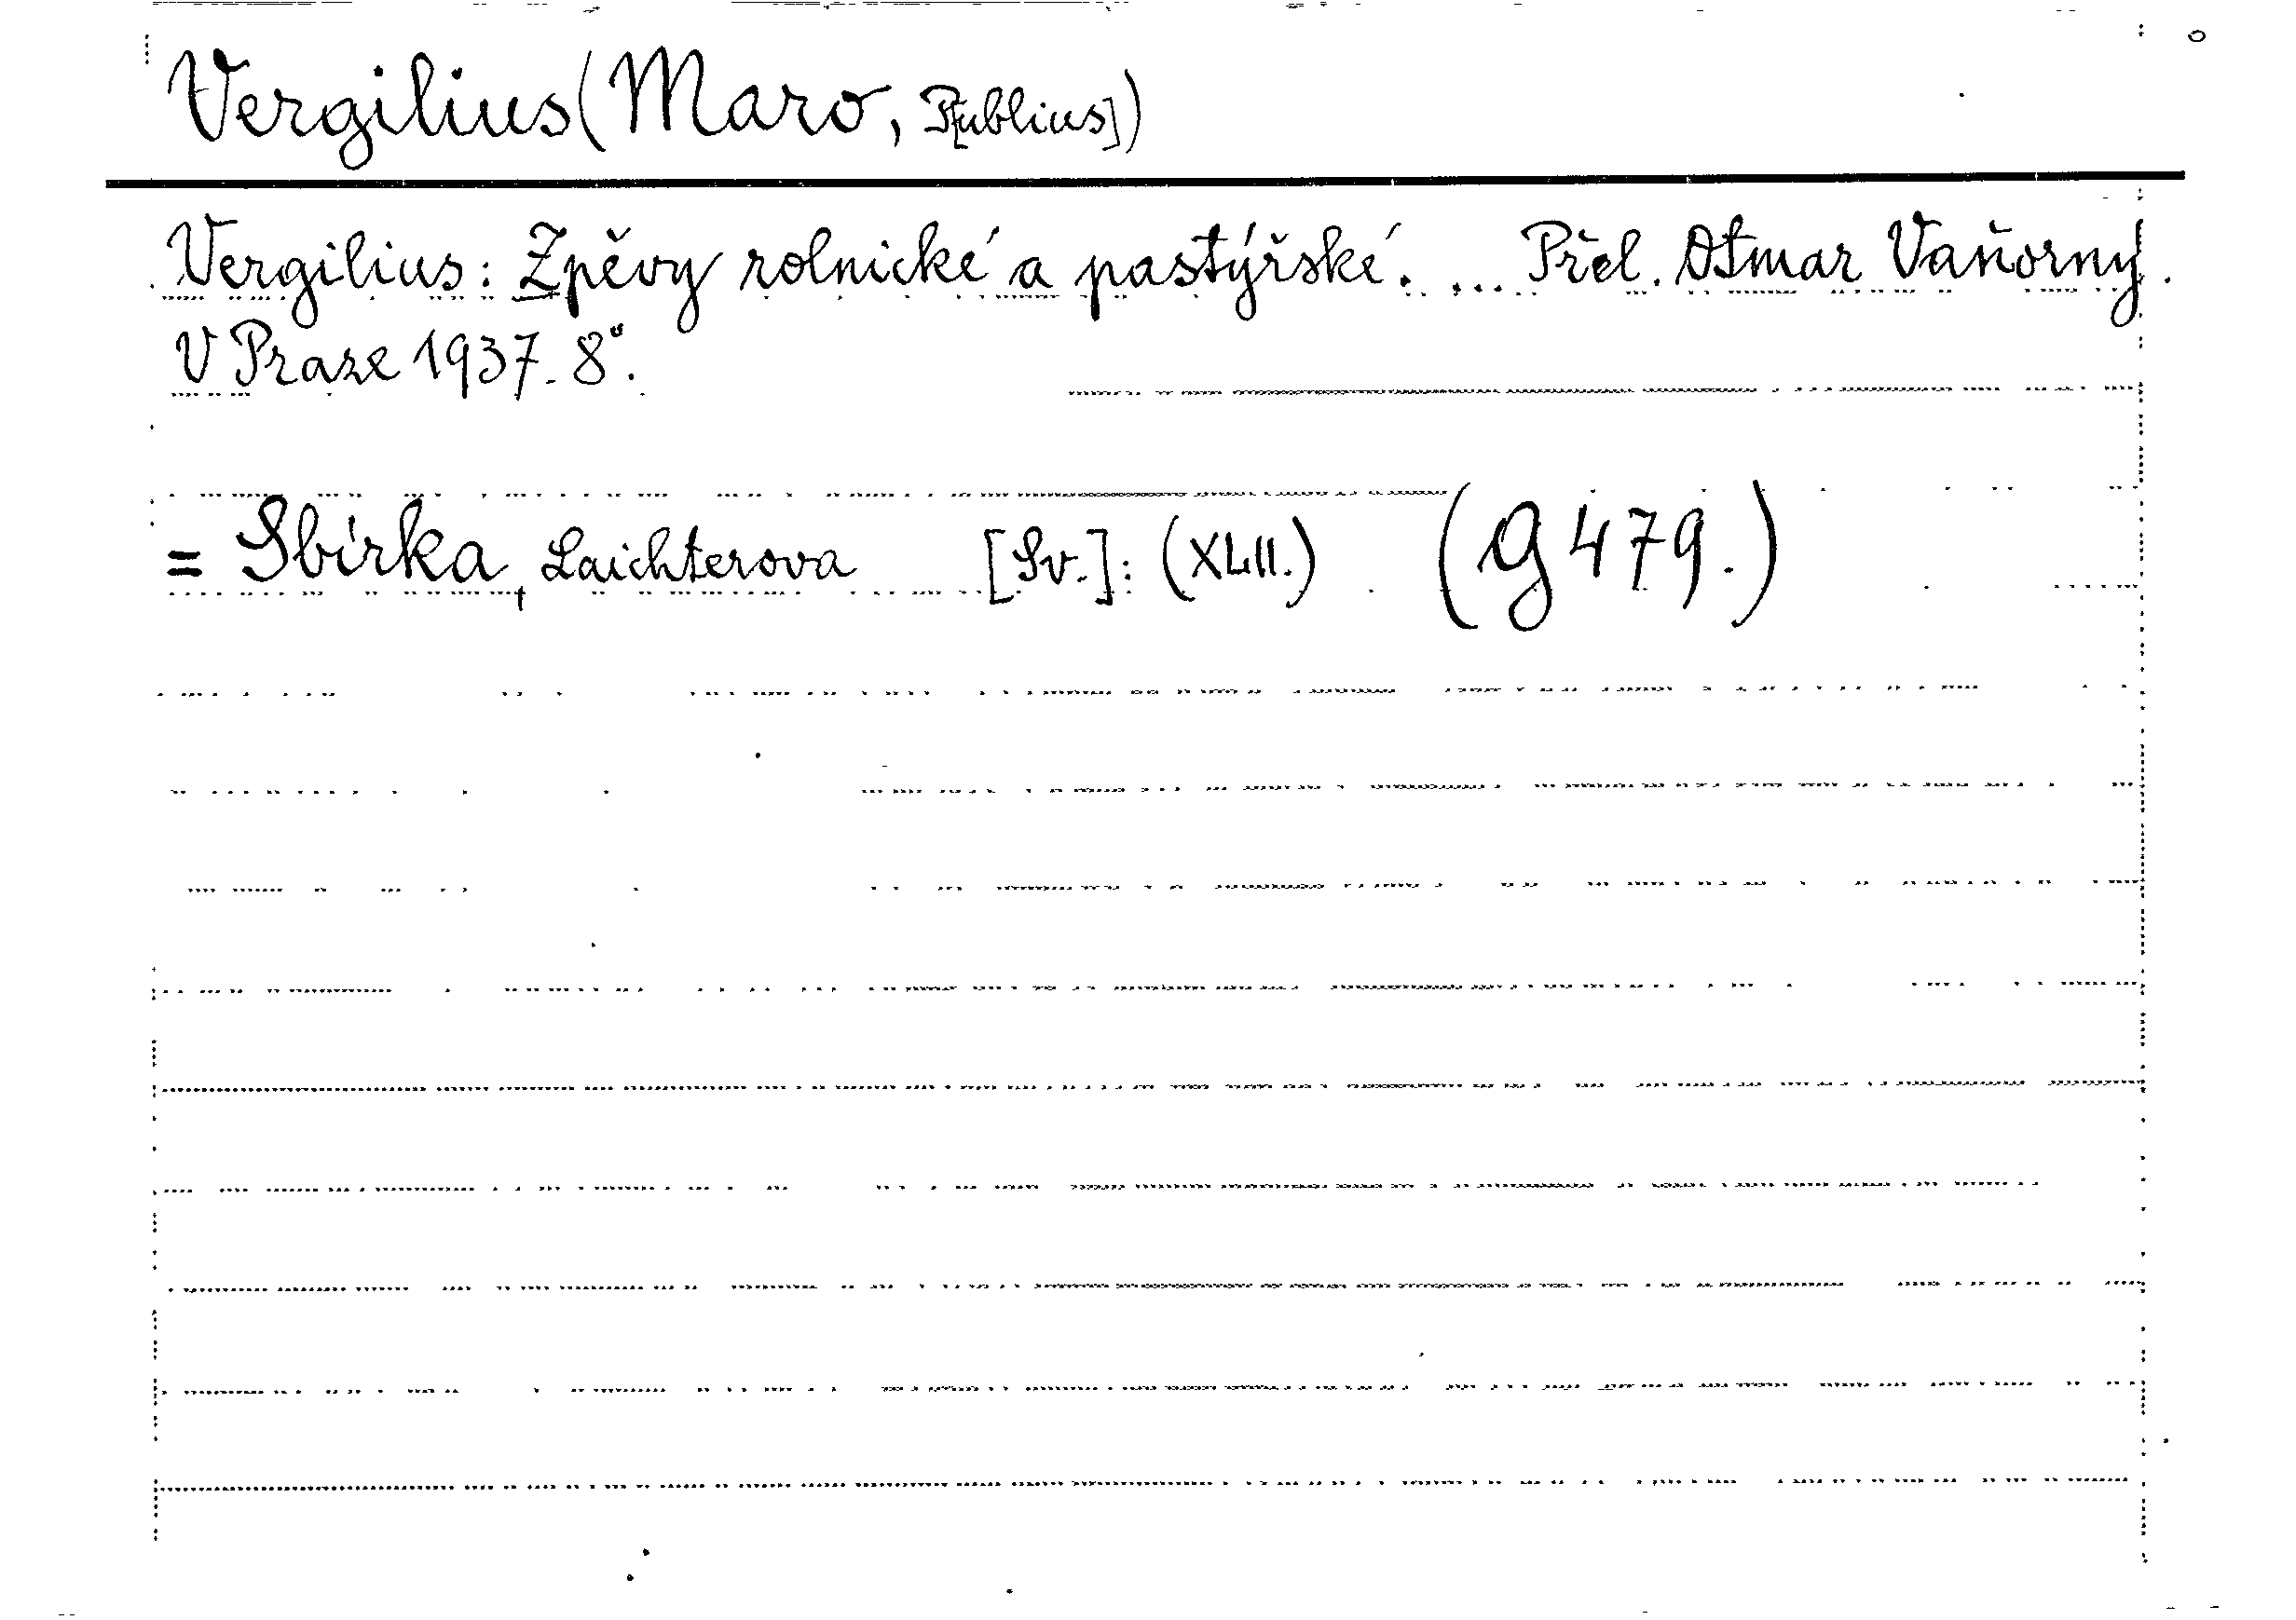 Vergilius (Maro, P[ublius])
Vergilius: Zpěvy rolnické a pastýřské. ... Přel. Otmar Vaňorný.
V Praze 1937. 8°.
= Sbírka, Laichterova [Sv.]: (XLII.) (G 479.)